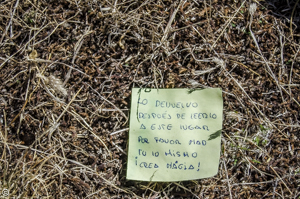 LO DEVUELVO
DESPUES DE LEERLO
A ESTE LUGAR
POR FAVOR HAZ
TU LO MISMO
¡CREA MAGIA!